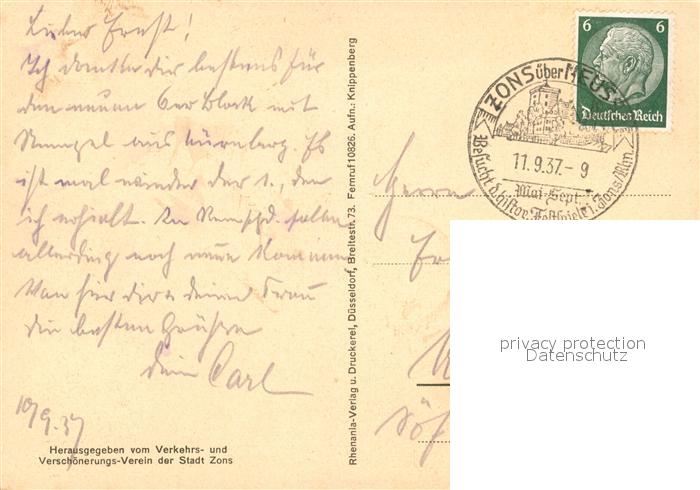 Lieber Ernst!
Ich danke dir bestens für
den neuen 6er Block mit
Stempel aus Nürnberg. Es
ist mal wieder der 1., den
ich erhielt. In
allerdings noch neue kommen
Von hier dir u. deiner Frau
die besten Grüsse
dein Carl
10/9.37
Herausgegeben vom Verkehrs- und
Verschönerungs-Verein der Stadt Zons
Rhenania-Verlag u. Druckerei, Düsseldorf, Breitestr. 73. Fernruf 10826. Aufn.: Knippenberg
6 6
Deutsches Reich
ZONS über NEUSS
11.9.37.- 9
Mai-Sept.
Besucht d. histor. Festspiele i. Zons/Rhn.
Herrn
privacy protection
Datenschutz